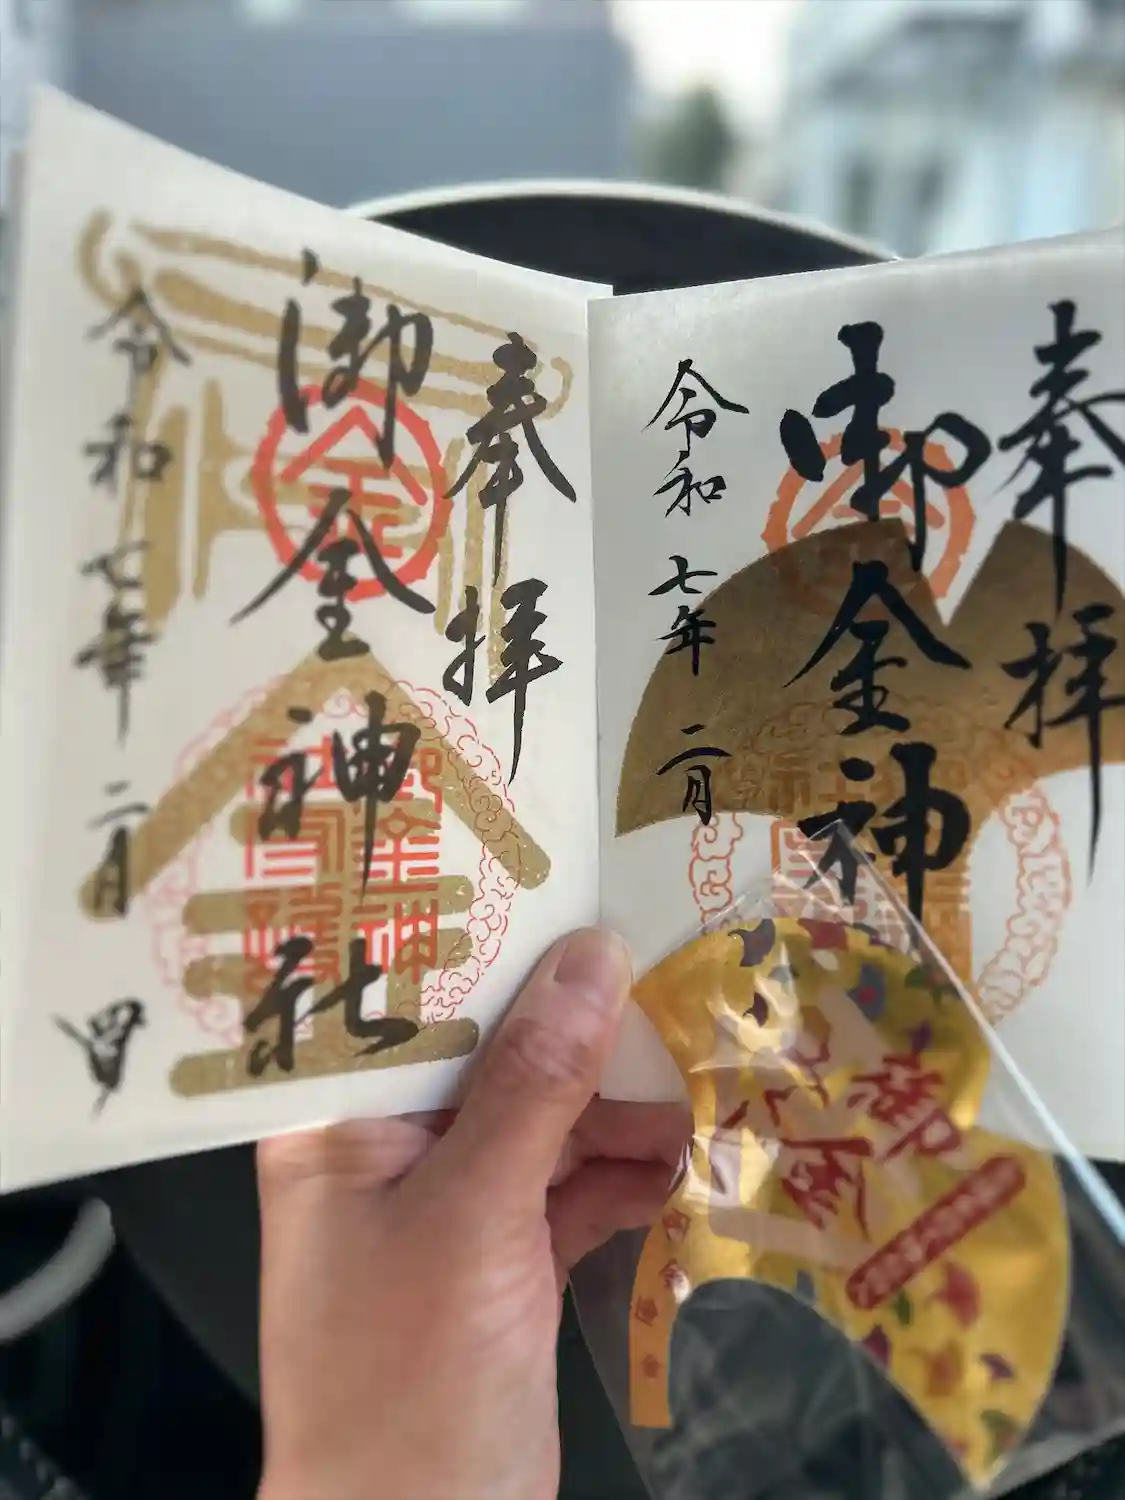 奉拝
御金神
令和七年二月
奉拝
御金神社
令和七年二月
金
御金